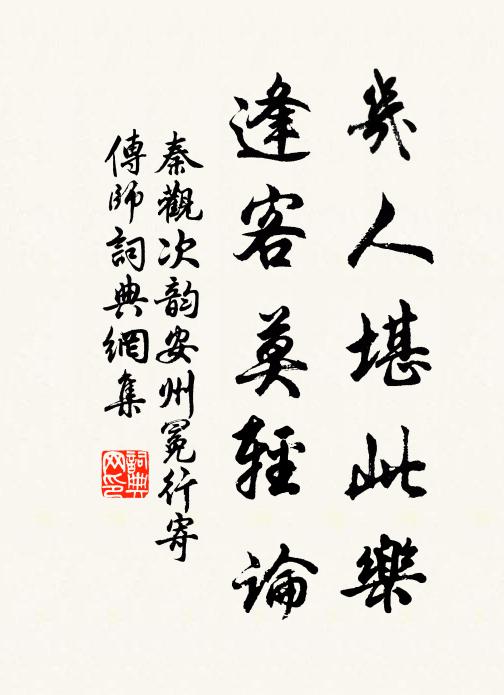 幾人堪此樂
逢客莫輕論
秦觀次韵安州晚行寄
傳師詞典網集
詞典网印